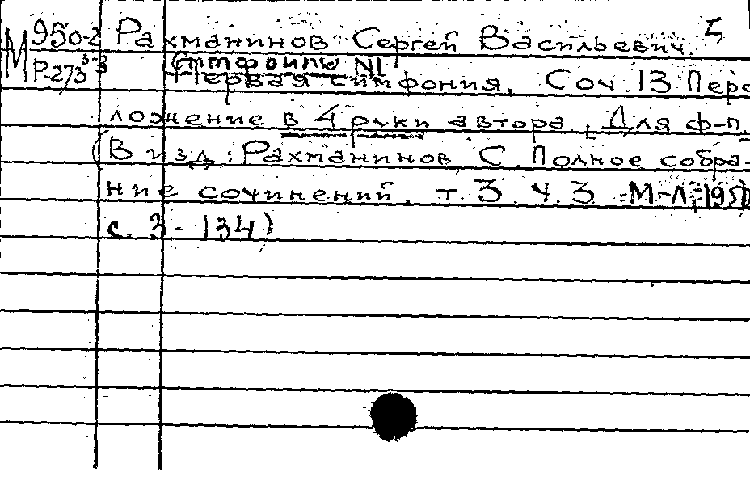 М 950-2 Рахманинов Сергей Васильевич.
Р-273 3-3 Симфония N1
Первая симфония. Соч 13 Пере
ложение в 4 руки автора. Для ф-п.
(В изд: Рахманинов С. Полное собра-
ние сочинений. т. 3. ч. 3 М-Л, 195
с. 3 - 134)